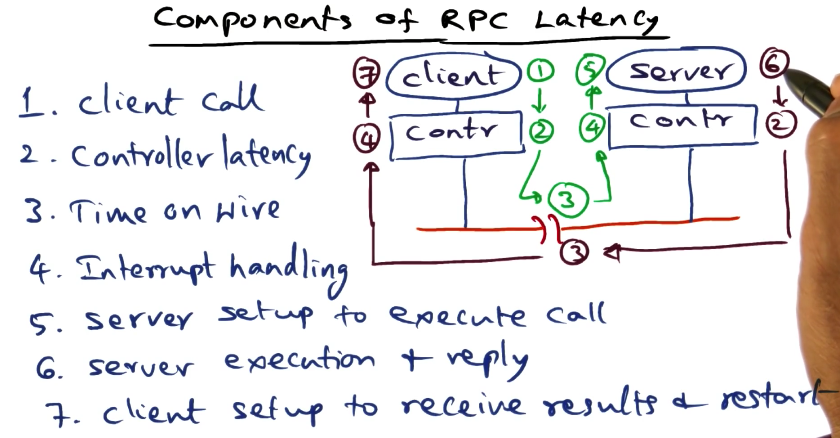 Components of RPC Latency
1. client call
2. Controller latency
3. Time on wire
4. Interrupt handling
5. server setup to execute call
6. server execution + reply
7. client setup to receive results & restart
7 client 1 5 server 6
4 Contr 2 4 Contr 2
3
3